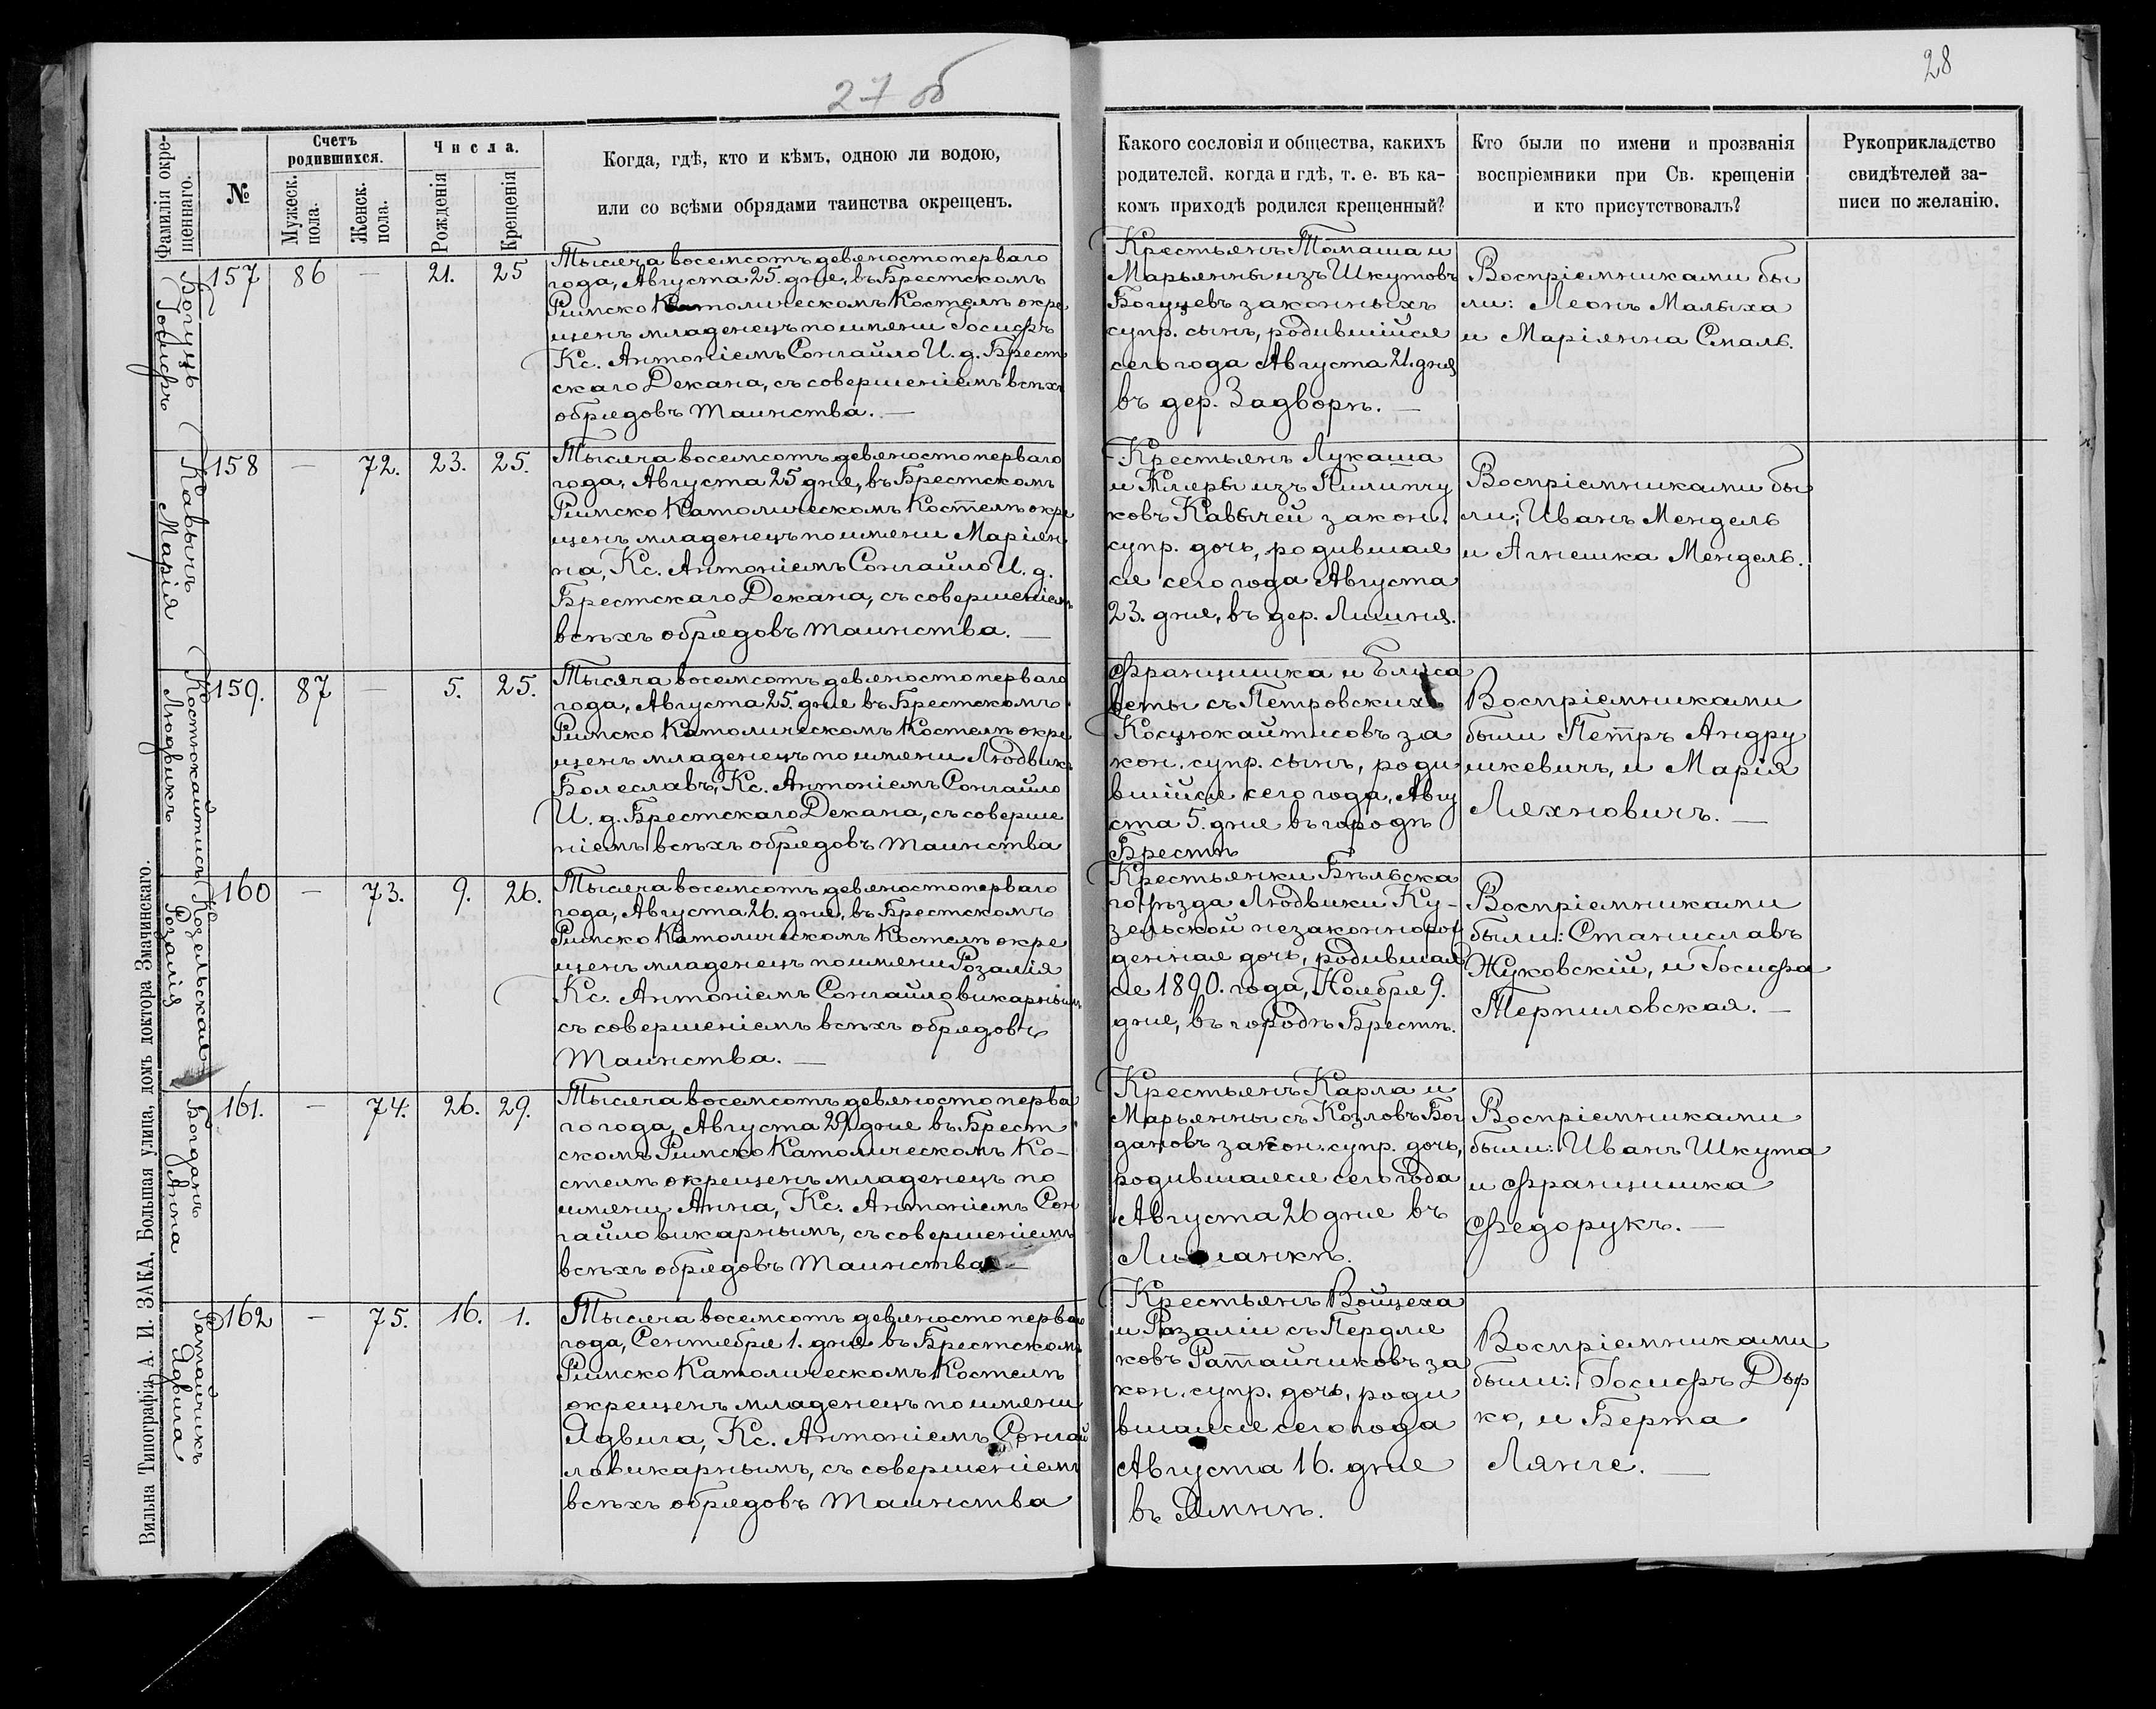 27 об
28
Фамилія окре-
щеннаго.
№
Счетъ
родившихся.
Мужеск.
пола.
Женск.
пола.
Числа.
Рожденія
Крещенія
Когда, гдѣ, кто и кѣмъ, одною ли водою,
или со всѣми обрядами таинства окрещенъ.
Какого сословія и общества, какихъ
родителей, когда и гдѣ, т. е. въ ка-
комъ приходѣ родился крещенный?
Кто были по имени и прозванія
воспріемники при Св. крещеніи
и кто присутствовалъ?
Рукоприкладство
свидѣтелей за-
писи по желанію.
Богуцъ
Іосифъ
157 86 — 21. 25
Тысяча восемсотъ девяносто перваго
года, Августа 25. дня, въ Брестскомъ
Римско Католическомъ Костелѣ окре
щенъ младенецъ по имени Іосифъ
Кс. Антоніемъ Сонгайло И. д. Брест
скаго Декана, съ совершеніемъ всѣхъ
обрядовъ таинства. —
Крестьянъ Томаша и
Марьянны изъ Шкутовъ
Богуцевъ законныхъ
супр. сынъ, родившійся
сего года Августа 21. дня
въ дер. Задворѣ. —
Воспріемниками бы
ли: Леонъ Малыха
и Маріянна Смаль.
Кавычъ
Марія
158 — 72. 23. 25.
Тысяча восемсотъ девяносто перваго
года, Августа 25 дня, въ Брестскомъ
Римско Католическомъ Костелѣ окре
щенъ младенецъ по имени Маріян
на, Кс. Антоніемъ Сонгайло И. д.
Брестскаго Декана, съ совершеніемъ
всѣхъ обрядовъ таинства. —
Крестьянъ Лукаша
и Клеры изъ Пилипчу
ковъ Кавычей закон.
супр. дочь, родившая
ся сего года Августа
23. дня, въ дер. Лишня.
Воспріемниками бы
ли: Иванъ Мендель
и Агнешка Мендель.
Костюкайтисъ
Людвикъ
159. 87 — 5. 25.
Тысяча восемсотъ девяносто перваго
года, Августа 25. дня въ Брестскомъ
Римско Католическомъ Костелѣ окре
щенъ младенецъ по имени Людвикъ
Болеславъ, Кс. Антоніемъ Сонгайло
И. д. Брестскаго Декана, съ соверше
ніемъ всѣхъ обрядовъ таинства
Францишка и Елиса
веты съ Петровскихъ
Косцюкайтисовъ за
кон. супр. сынъ, роди
вшійся сего года, Авгу
ста 5. дня въ городѣ
Брестѣ
Воспріемниками
были Петръ Андру
шкевичъ, и Марія
Ляхновичъ. —
Козельская
Розалія
160 — 73. 9. 26.
Тысяча восемсотъ девяносто перваго
года, Августа 26. дня, въ Брестскомъ
Римско Католическомъ Костелѣ окре
щенъ младенецъ по имени Розалія
Кс. Антоніемъ Сонгайло викарнымъ
съ совершеніемъ всѣхъ обрядовъ
таинства. —
Крестьянки Бѣльска
го уѣзда Людвики Ку-
зельской незаконнорож
денная дочь, родившая
ся 1890. года, Ноября 9.
дня, въ городѣ Брестѣ.
Воспріемниками
были: Станиславъ
Жуковскій, и Іосифа
Терпиловская. —
Богданъ
Анна
161. — 74. 26. 29.
Тысяча восемсотъ девяносто перва
го года, Августа 29. дня въ Брест
скомъ Римско Католическомъ Ко-
стелѣ окрещенъ младенецъ по
имени Анна, Кс. Антоніемъ Сон
гайло викарнымъ, съ совершеніемъ
всѣхъ обрядовъ таинства —
Крестьянъ Карла и
Марьянны съ Козловъ Бог
дановъ закон. супр. дочь,
родившаяся сего года
Августа 26 дня въ
Воспріемниками
были: Иванъ Шкута
и Францишка
Федорукъ. —
Ратайчикъ
Ядвига
162 — 75. 16. 1.
Тысяча восемсотъ девяносто перваго
года, Сентября 1. дня въ Брестскомъ
Римско Католическомъ Костелѣ
окрещенъ младенецъ по имени
Ядвига, Кс. Антоніемъ Сонгай
ло викарнымъ, съ совершеніемъ
всѣхъ обрядовъ таинства
Крестьянъ Войцеха
и Розаліи съ Пердля
ковъ Ратайчиковъ за
кон. супр. дочь, роди
вшаяся сего года
Августа 16. дня
въ
Воспріемниками
были: Іосифъ Дыр
ко, и Берта
Лянге. —
Вильна Типографія А. И. ЗАКА, Большая улица, домъ доктора Змачинскаго.